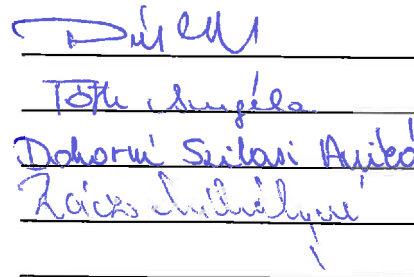 Tóth Angéla
Dohorné Szilasi Anikó
Rácz Mihályné